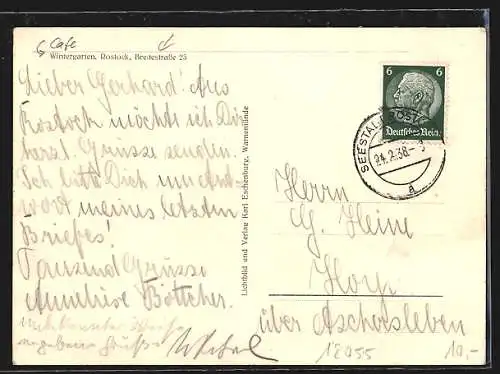 Cafe
Wintergarten, Rostock, Breitestraße 25
Lieber Gerhard! Aus
Rostock möchte ich Dir
herzl. Grüsse senden.
Ich bitte Dich um Ant-
wort meines letzten
Briefes!
Tausend Grüsse
Anneliese Böttcher.
unbekannter Weise
Grüße
Lichtbild und Verlag Karl Eschenburg, Warnemünde
6 6
Deutsches Reich
SEESTADT ROSTOCK
24.2.36
a
Herrn
G. Heine
Hoym
über Aschersleben
18055
10,-